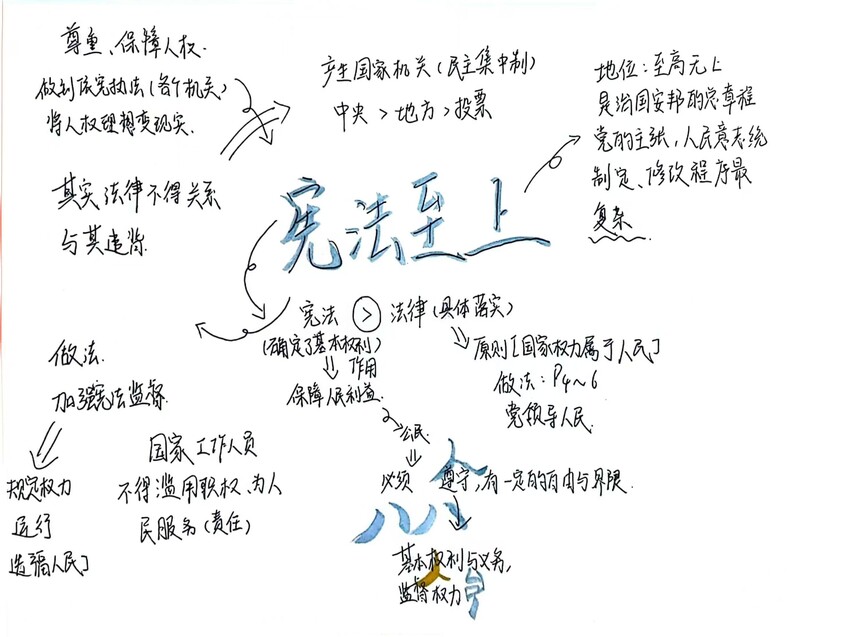 尊重、保障人权.
做到依宪执法(各个机关)
将人权理想变现实.
产生国家机关(民主集中制)
中央 > 地方 > 投票
地位:至高无上
是治国安邦的总章程
党的主张,人民意志统
制定、修改程序最
复杂
其实法律不得关系
与其违背.
宪法至上
宪法 > 法律(具体落实)
(确定了基本权利)
作用
保障人民利益.
原则[国家权力属于人民]
做法:P4~6
党领导人民.
做法.
加强宪法监督.
规定权力
运行
造福人民]
国家工作人员
不得滥用职权、为人
民服务(责任)
公民
必须 遵守,有一定的自由与界限.
基本权利与义务,
监督权力